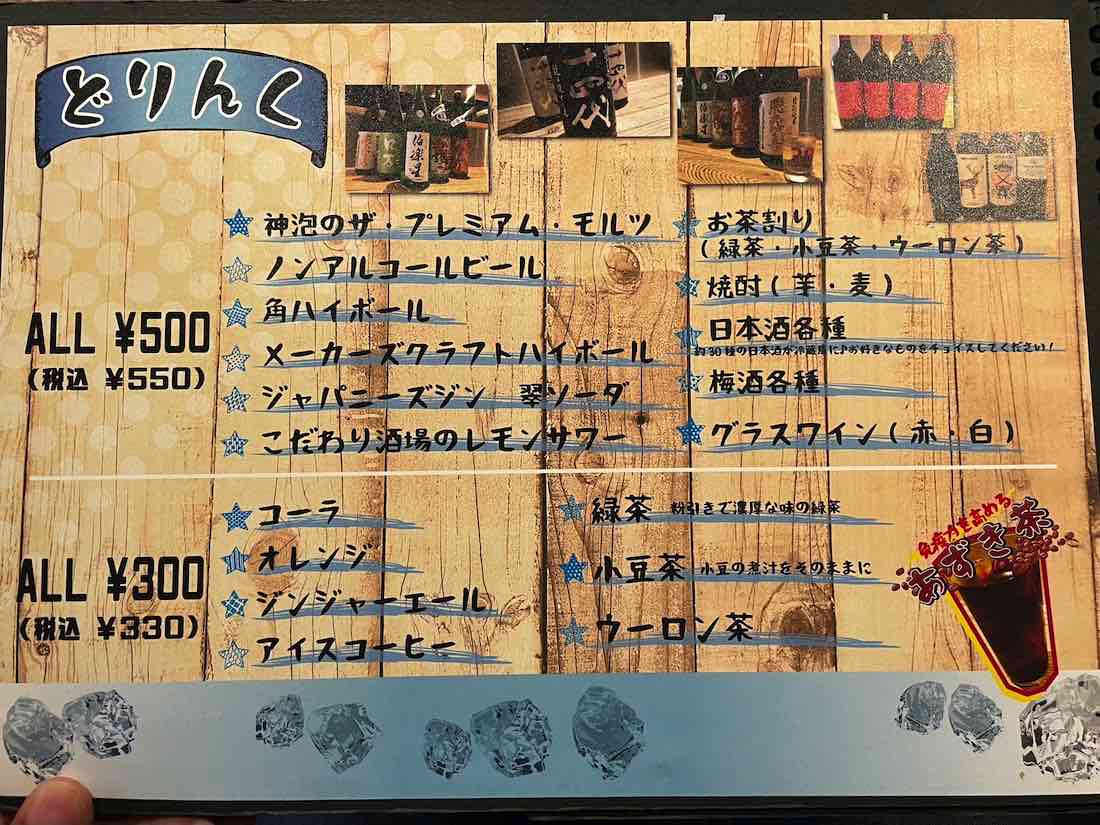 どりんく
ALL ¥500
(税込 ¥550)
神泡のザ・プレミアム・モルツ
ノンアルコールビール
角ハイボール
メーカーズクラフトハイボール
ジャパニーズジン 翠ソーダ
こだわり酒場のレモンサワー
お茶割り
(緑茶・小豆茶・ウーロン茶)
焼酎(芋・麦)
日本酒各種
約30種の日本酒が冷蔵庫に♪お好きなものをチョイスしてください!
梅酒各種
グラスワイン(赤・白)
ALL ¥300
(税込 ¥330)
コーラ
オレンジ
ジンジャーエール
アイスコーヒー
緑茶 粉引きで濃厚な味の緑茶
小豆茶 小豆の煮汁をそのままに
ウーロン茶
免疫力を高める
あずき茶
十四代
伯楽星